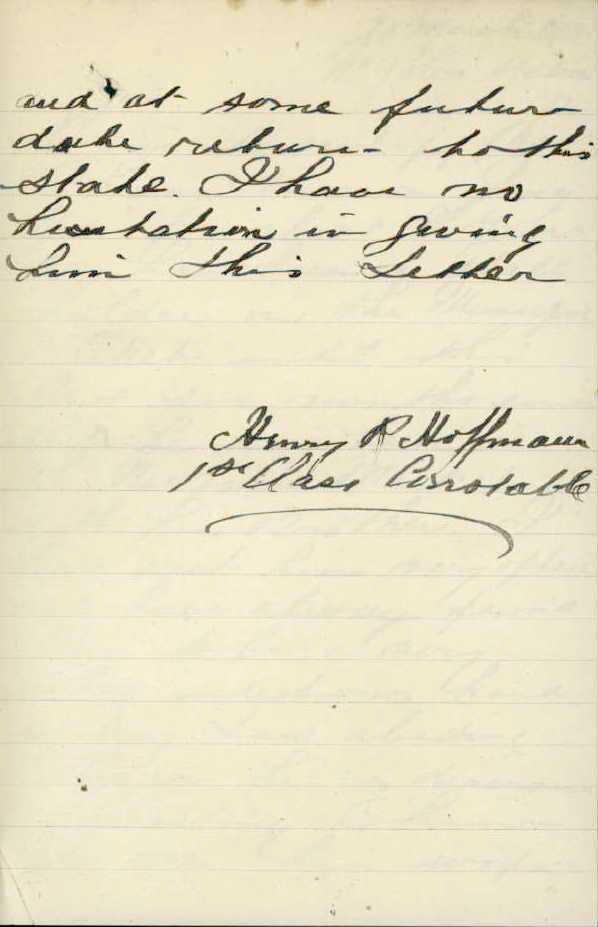 and at some future
date return to this
state. I have no
hesitation in giving
him this Letter
Henry P Hoffmann
1st Class Constable